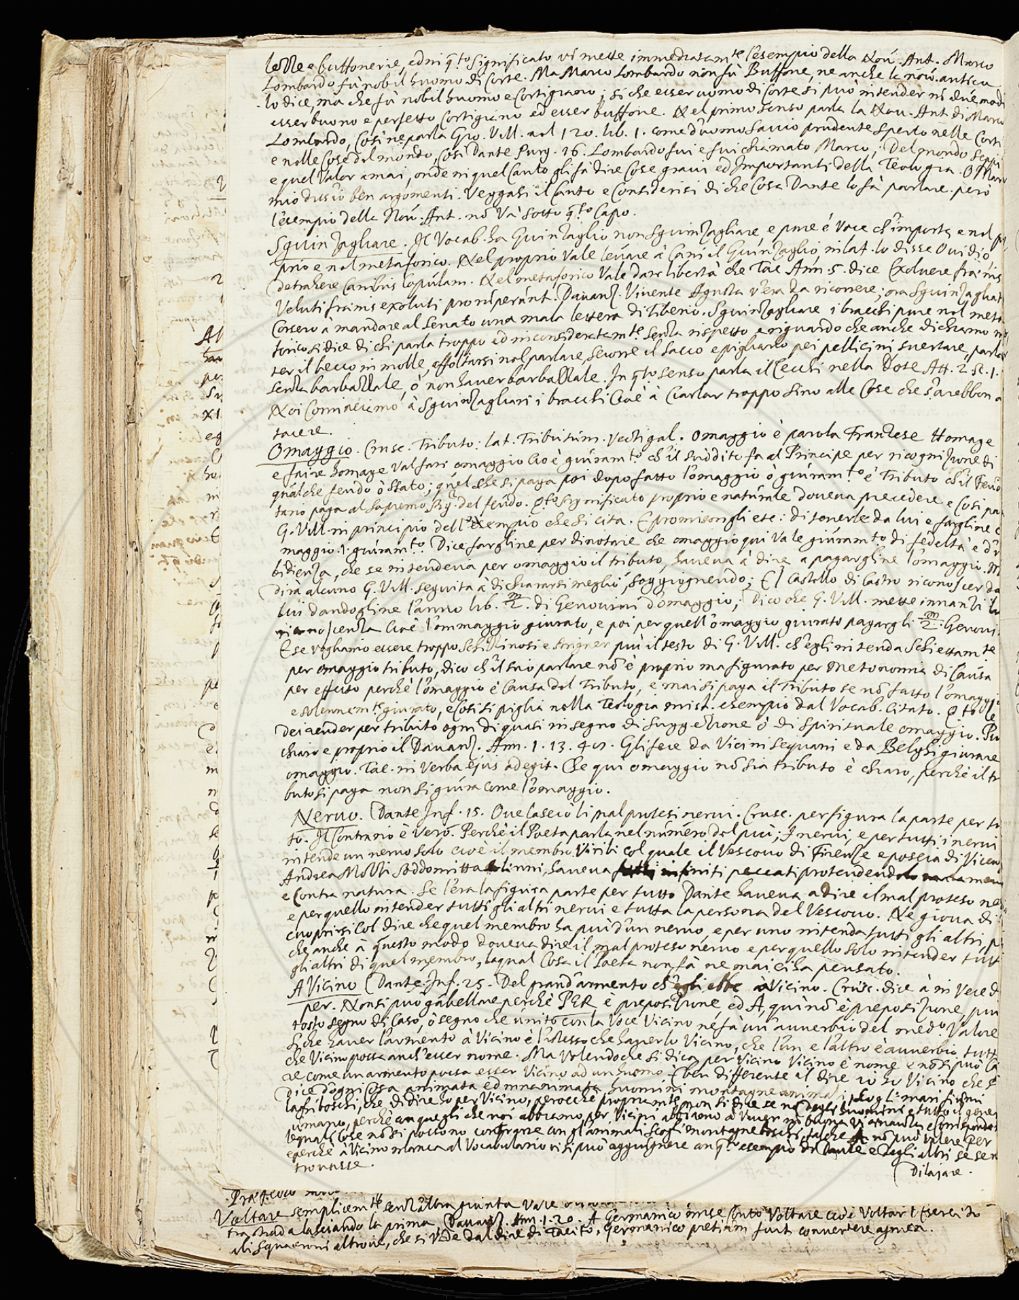 e buffonerie, ed in q.to significato vi mette immediatam.te l'esempio della Nov. Ant. Marco
Lombardo fù nobil huomo di Corte. Ma Marco Lombardo non fù Buffone, ne anche la nov. antica
lo dice, ma che fù nobil huomo e Cortigiano; si che esser uomo di Corte si può intender in due modi
esser buono e perfetto Cortigiano ed esser buffone. Nel primo senso parla la Nov. Ant. di Marco
Lombardo, Così ne parla Gio. Vill. a el 120. lib. 1. come d'uomo savio prudente sperto nelle Corti
e nelle Cose del mondo, Così Dante Purg. 16. Lombardo fui e fui chiamato Marco; Del mondo seppi
e quel valor amai, onde in quel Canto gli fà dire Cose gravi ed Importanti dell' Teologia. O Marco
mio diss'io ben argomenti. Veggasi il Canto e Considerisi di che Cosa Dante lo fà parlare. però
l'esempio delle Nov. Ant. nō và sotto q.to Capo.
Sguinzagliare. Il Vocab. ha Guinzaglio non Sguinzagliare, e pure è Voce ch'importa e nel
prio e nel metaforico. Nel proprio vale levare à Cani il Guinzaglio, in lat. lo disse Ovidio
detrahere Canibus copulam. Nel metaforico Vale dare libertà che Tac. Ann. 5. dice Exolvere frænis
Veluti frænis exoluti proruperant. Davanz. Vivente Agusta v'era da ricorrere; ora sguinzagliati
Corsero a mandare al Senato una mala lettera di Tiberio. Sguinzagliare i bracchi pure nel meta
forico si dice di chi parla troppo ed inconsideratam.te senza rispetto e riguardo che anche diciamo
ter il becco in molle, affoltarsi nel parlare, sciorre il sacco e pigliarlo pei pellicini svertare, parlar
senza barbazzale, ò non haver barbazzale. In q.to senso parla il Cecchi nella Dote Att. 2 sc. 1.
Noi Cominciamo à Sguinzagliari i bracchi Cioè à Ciarlar troppo sino alle Cose che s'arebbon a
tacere.
Omaggio. Crusc. Tributo. lat. Tributum. Vectigal. Omaggio è parola Franzese Homage
e faire homage Val fari omaggio Cioè giuram.to ch'il suddito fa al Principe per ricognizione di
qualche feudo ò stato; quel che si paga poi dopo fatto l'omaggio ò giuram.to è Tributo ch'il feudo
tario paga al supremo sig.r del feudo. Q.to significato proprio e naturale doveva precedere, e Così pa
G. Vill. in principio dell'Esempio che si cita. E promisongli etc: di tenerle da lui e fargline
maggio. i. giuram.to. Dice fargline per dinotare che omaggio qui vale giuram.to di fedeltà e d'u
bidienza, che se intendeva per omaggio il tributo, haveva à dire a pagargline l'omaggio. M
dirà alcuno G. Vill. seguita à dichiararsi meglio, soggiugnendo; E 'l Castello di Castro riconoscer da
lui dandogline l'anno lib. m/2. di Genovini d'omaggio; Dico che G. Vill. mette innanzi la
riconoscenza Cioè l'ommaggio giurato, e poi per quell'omaggio giurato pagargli m/2. Genovi
E se vogliamo essere troppo sottilinosi e stringer più il testo di G. Vill. ch'egli intenda schiettam.te
per omaggio tributo, dico ch'il suo parlare nō è proprio ma figurato per metonomia di Causa
per effetto perchè l'omaggio è Causa del Tributo, e mai si paga il Tributo se nō fatto l'omaggio
e solennem.te giurato, e Così si piglia nella Teologia mist. esempio dal Vocab. Citato.
der render per tributo ogni dì quasi in segno di suggezione ò di spirituale omaggio. Più
chiaro e proprio il Davanz. Ann. 1. 13. 407. Gli fece da Vicini Sequani e da Belghi giurare
omaggio. Tac. in Verba ejus adegit. Che qui omaggio nō sia tributo è chiaro, perchè il tri
buto si paga non si giura come l'omaggio.
Nervo. Dante Inf. 15. Ove lasciò li mal protesi nervi. Crusc. per figura la parte per tut
to. Il Contrario è Vero. Perchè il Poeta parla nel numero del più; I nervi, e per tutti i nervi
intende un nervo solo cioè il membro Virili Col quale il Vescovo di Firenze e poscia di Vicenza
Andrea Mozzi Soddomitta haveva peccati protendendolo
e Contra natura. Se l'era la figura parte per tutto Dante haveva a dire il mal proteso ne
e per quello intender tutti gli altri nervi e tutta la persona del Vescovo. Ne giova di
cuoprirsi Col dire che quel membro ha più d'un nervo, e per uno intenda tutti gli altri, p
che anche à questo modo doveva dire il mal proteso nervo e per quello solo intender tutti
gli altri di quel membro, la qual Cosa il Poeta non fà ne mai ci ha pensato.
A Vicino. Dante Inf. 25. Del grand'armento ch'egli ebbe à Vicino. Crusc. dice à in Vece di
per. Non si può gabellare perchè PER è preposizione, ed A, qui nō è preposizione, più
tosto segno di Caso, ò segno che unito con la Voce Vicino ne fà un avverbio del med.o Valore
Sì che haver l'armento à Vicino è l'istesso che haverlo Vicino, che l'un e l'altro è avverbio, tutto
che Vicino possa anch'esser nome. Ma Volendo che si dica per Vicino Vicino è nome e nō si può ca
re come un armento possa esser Vicino ad un huomo. E ben differente il dire io hò Vicino che si
dice d'ogni Cosa animata ed innanimata huomini montagne animali, scogli mari fiumi
laghi boschi, che di dire ho per Vicino, perocchè propriamente non si dice se nō degli huomini e tutto il genere
umano, perchè con quegli che noi abbiamo per Vicini abbiamo à viver in buona vicinanza e corrispondenza
le quali Cose nō si possono contrarre con gl'animali scogli montagne boschi, talchè A nō può valere Per
e perchè à Vicino manca al Vocabolario vi si può aggiugnere con q.to esempio di Dante e degli altri se se n
trovasse.
Dilajare.
Voltare semplicem.te senz'altra giunta Vale
tra strada lasciando la prima. Davanz. Ann. 1. 20. A Germanico Voltare cioè Voltar l'Esercito
gli Squadroni altrove, che si vede dal dire di Tacito, Germanico pretium fuit convertere agmen.